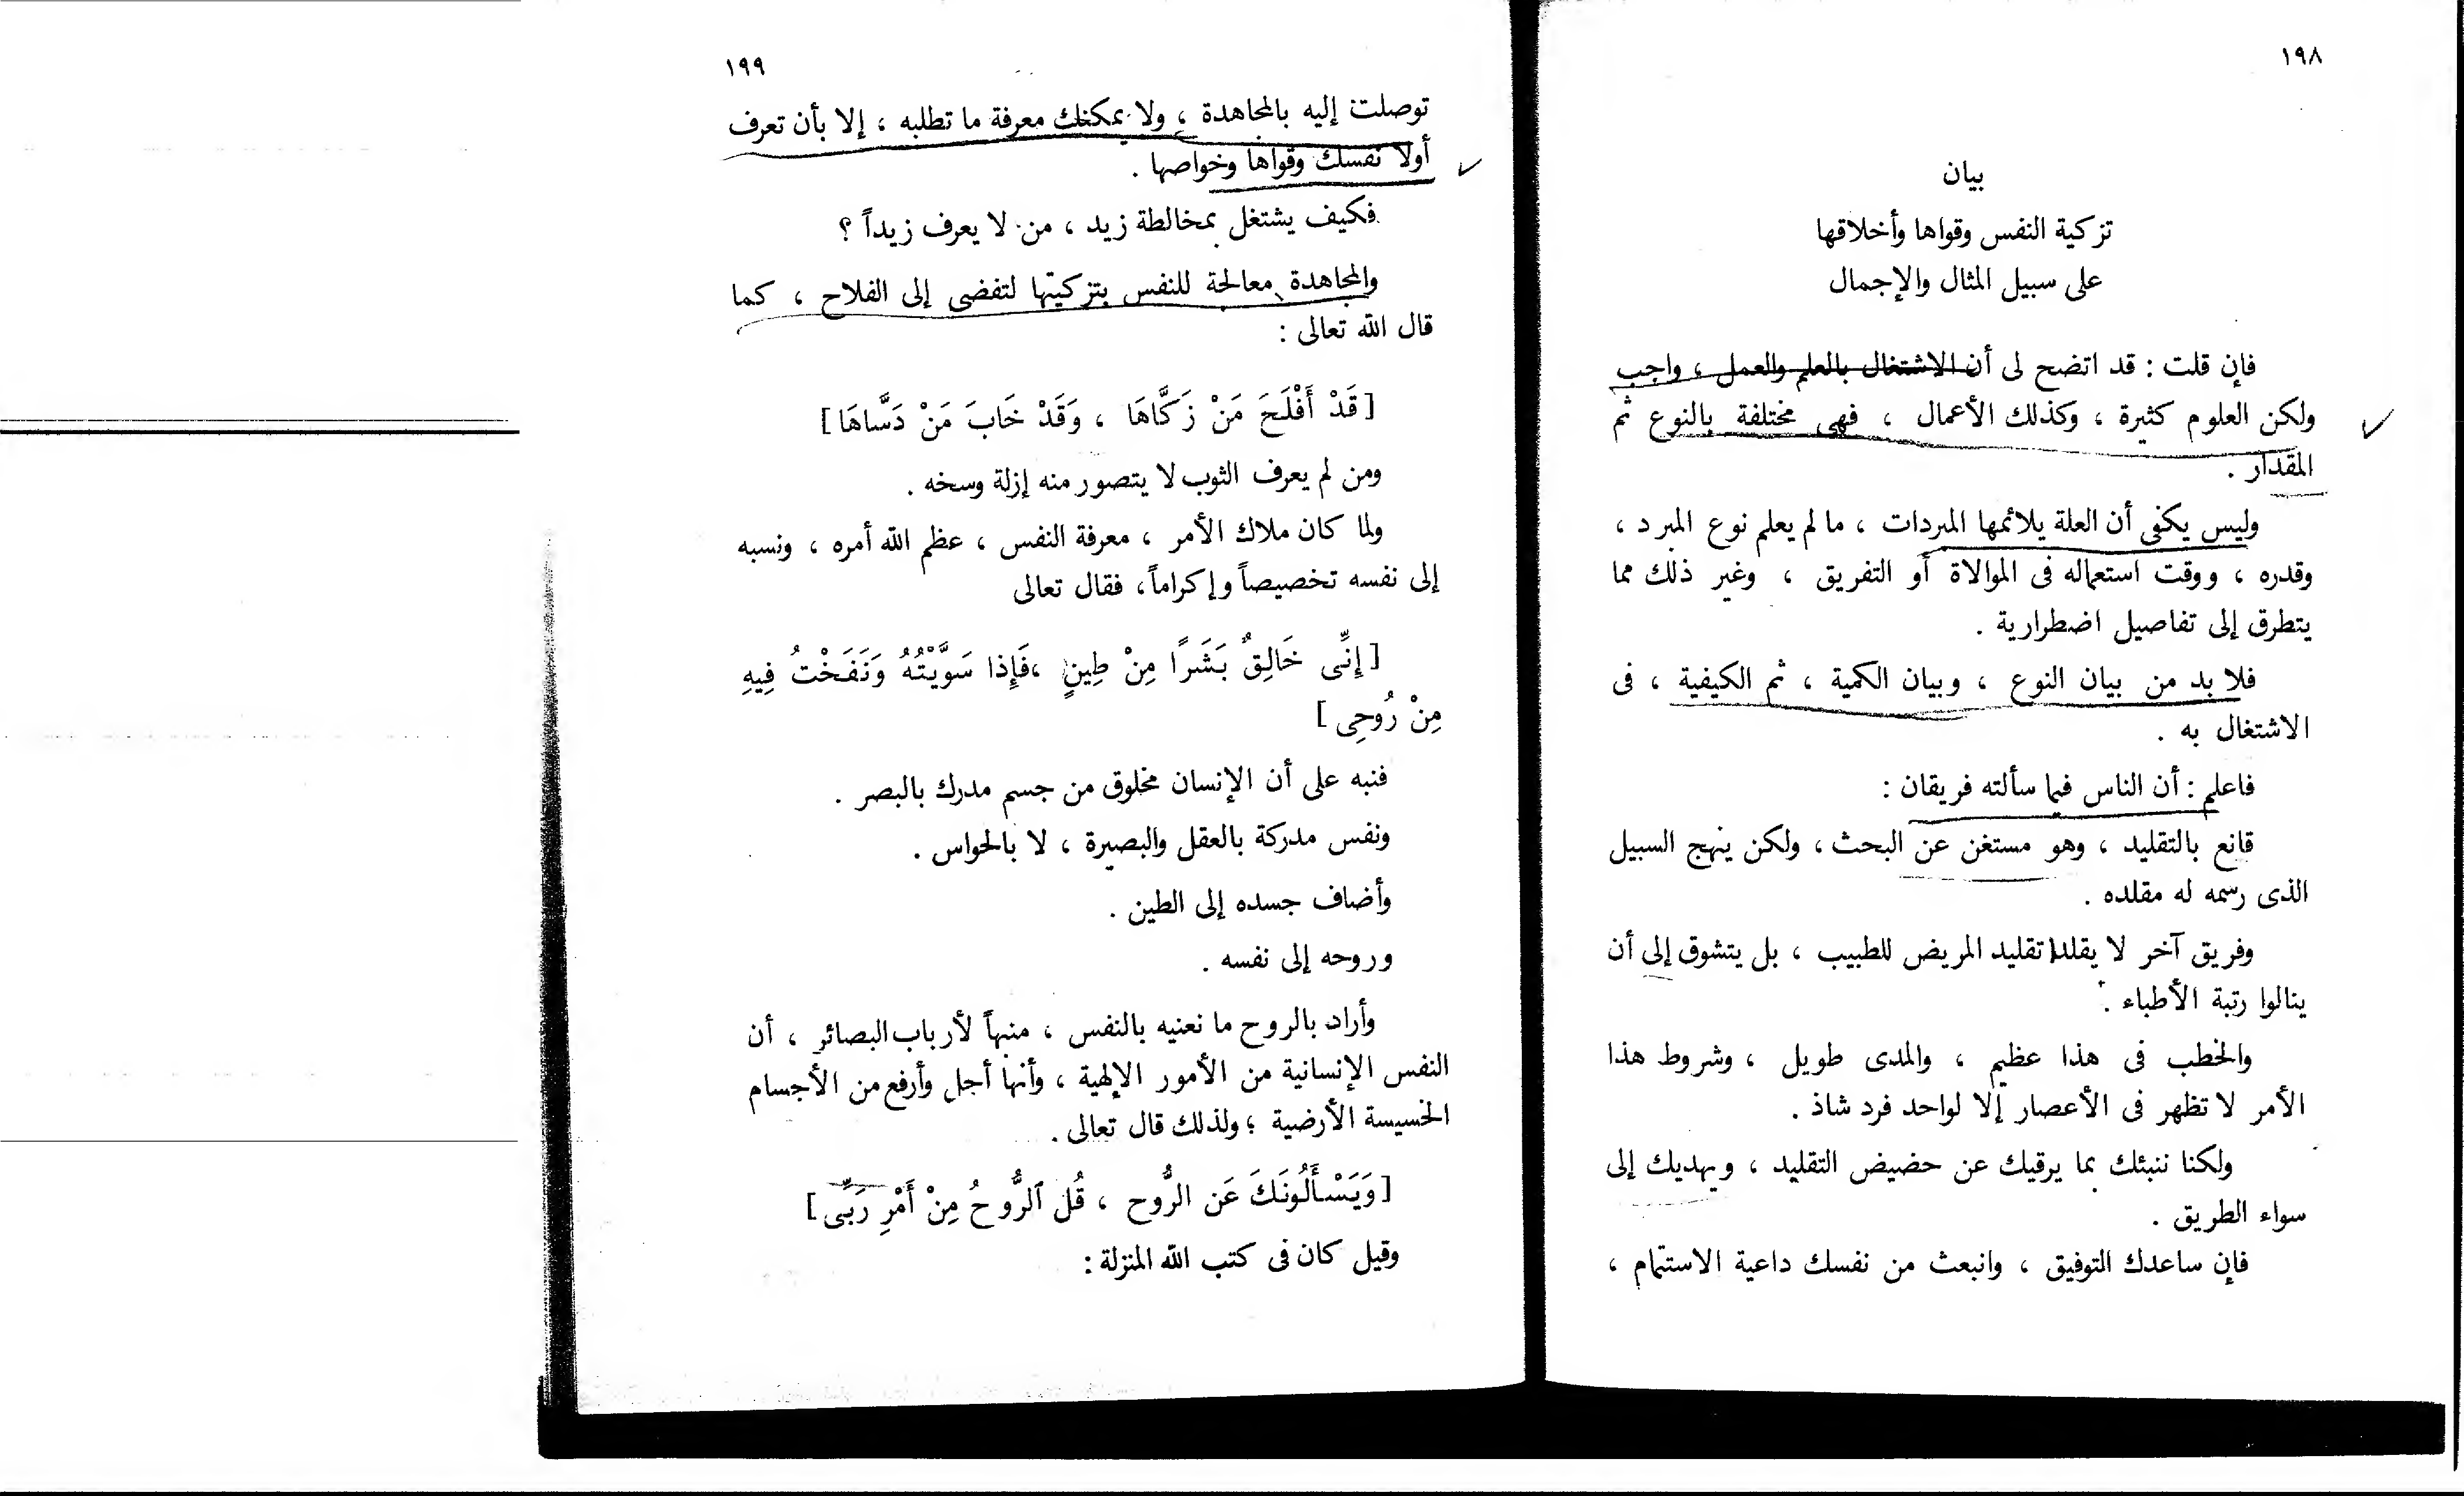 ١٩٨
بيان
تزكية النفس وقواها وأخلاقها
على سبيل المثال والإجمال
فإن قلت : قد اتضح لى أن الاشتغال بالعلم والعمل ، واجب
ولكن العلوم كثيرة ، وكذلك الأعمال ، فهى مختلفة بالنوع ثم
المقدار .
وليس يكفى أن العلة يلائمها المبردات ، ما لم يعلم نوع المبرد ،
وقدره ، ووقت استعماله فى الموالاة أو التفريق ، وغير ذلك مما
يتطرق إلى تفاصيل اضطرارية .
فلا بد من بيان النوع ، وبيان الكمية ، ثم الكيفية ، فى
الاشتغال به .
فاعلم : أن الناس فيما سألته فريقان :
قانع بالتقليد ، وهو مستغن عن البحث ، ولكن ينهج السبيل
الذى رسمه له مقلده .
وفريق آخر لا يقلد تقليد المريض للطبيب ، بل يتشوق إلى أن
ينالوا رتبة الأطباء .
والخطب فى هذا عظيم ، والمدى طويل ، وشروط هذا
الأمر لا تظهر فى الأعصار إلا لواحد فرد شاذ .
ولكنا ننبئك بما يرقيك عن حضيض التقليد ، ويهديك إلى
سواء الطريق .
فإن ساعدك التوفيق ، وانبعث من نفسك داعية الاستتمام ،
١٩٩
توصلت إليه بالمجاهدة ، ولا يمكنك معرفة ما تطلبه ، إلا بأن تعرف
أولا نفسك وقواها وخواصها .
فكيف يشتغل بمخالطة زيد ، من لا يعرف زيداً ؟
والمجاهدة معالجة للنفس بتزكيتها لتفضى إلى الفلاح ، كما
قال الله تعالى :
[ قَدْ أَفْلَحَ مَنْ زَكَّاهَا ، وَقَدْ خَابَ مَنْ دَسَّاهَا ]
ومن لم يعرف الثوب لا يتصور منه إزلة وسخه .
ولما كان ملاك الأمر ، معرفة النفس ، عظم الله أمره ، ونسبه
إلى نفسه تخصيصاً وإكراماً ، فقال تعالى
[ إِنِّى خَالِقٌ بَشَرًا مِنْ طِينٍ ، فَإِذا سَوَّيْتُهُ وَنَفَخْتُ فِيهِ
مِنْ رُوحِى ]
فنبه على أن الإنسان مخلوق من جسم مدرك بالبصر .
ونفس مدركة بالعقل والبصيرة ، لا بالحواس .
وأضاف جسده إلى الطين .
وروحه إلى نفسه .
وأراد بالروح ما نعنيه بالنفس ، منبهاً لأرباب البصائر ، أن
النفس الإنسانية من الأمور الإلهية ، وأنها أجل وأرفع من الأجسام
الخسيسة الأرضية ؛ ولذلك قال تعالى .
[ وَيَسْأَلُونَكَ عَن الرُّوح ، قُل ٱلرُّوحُ مِنْ أَمْرِ رَبِّى ]
وقيل كان فى كتب الله المنزلة :